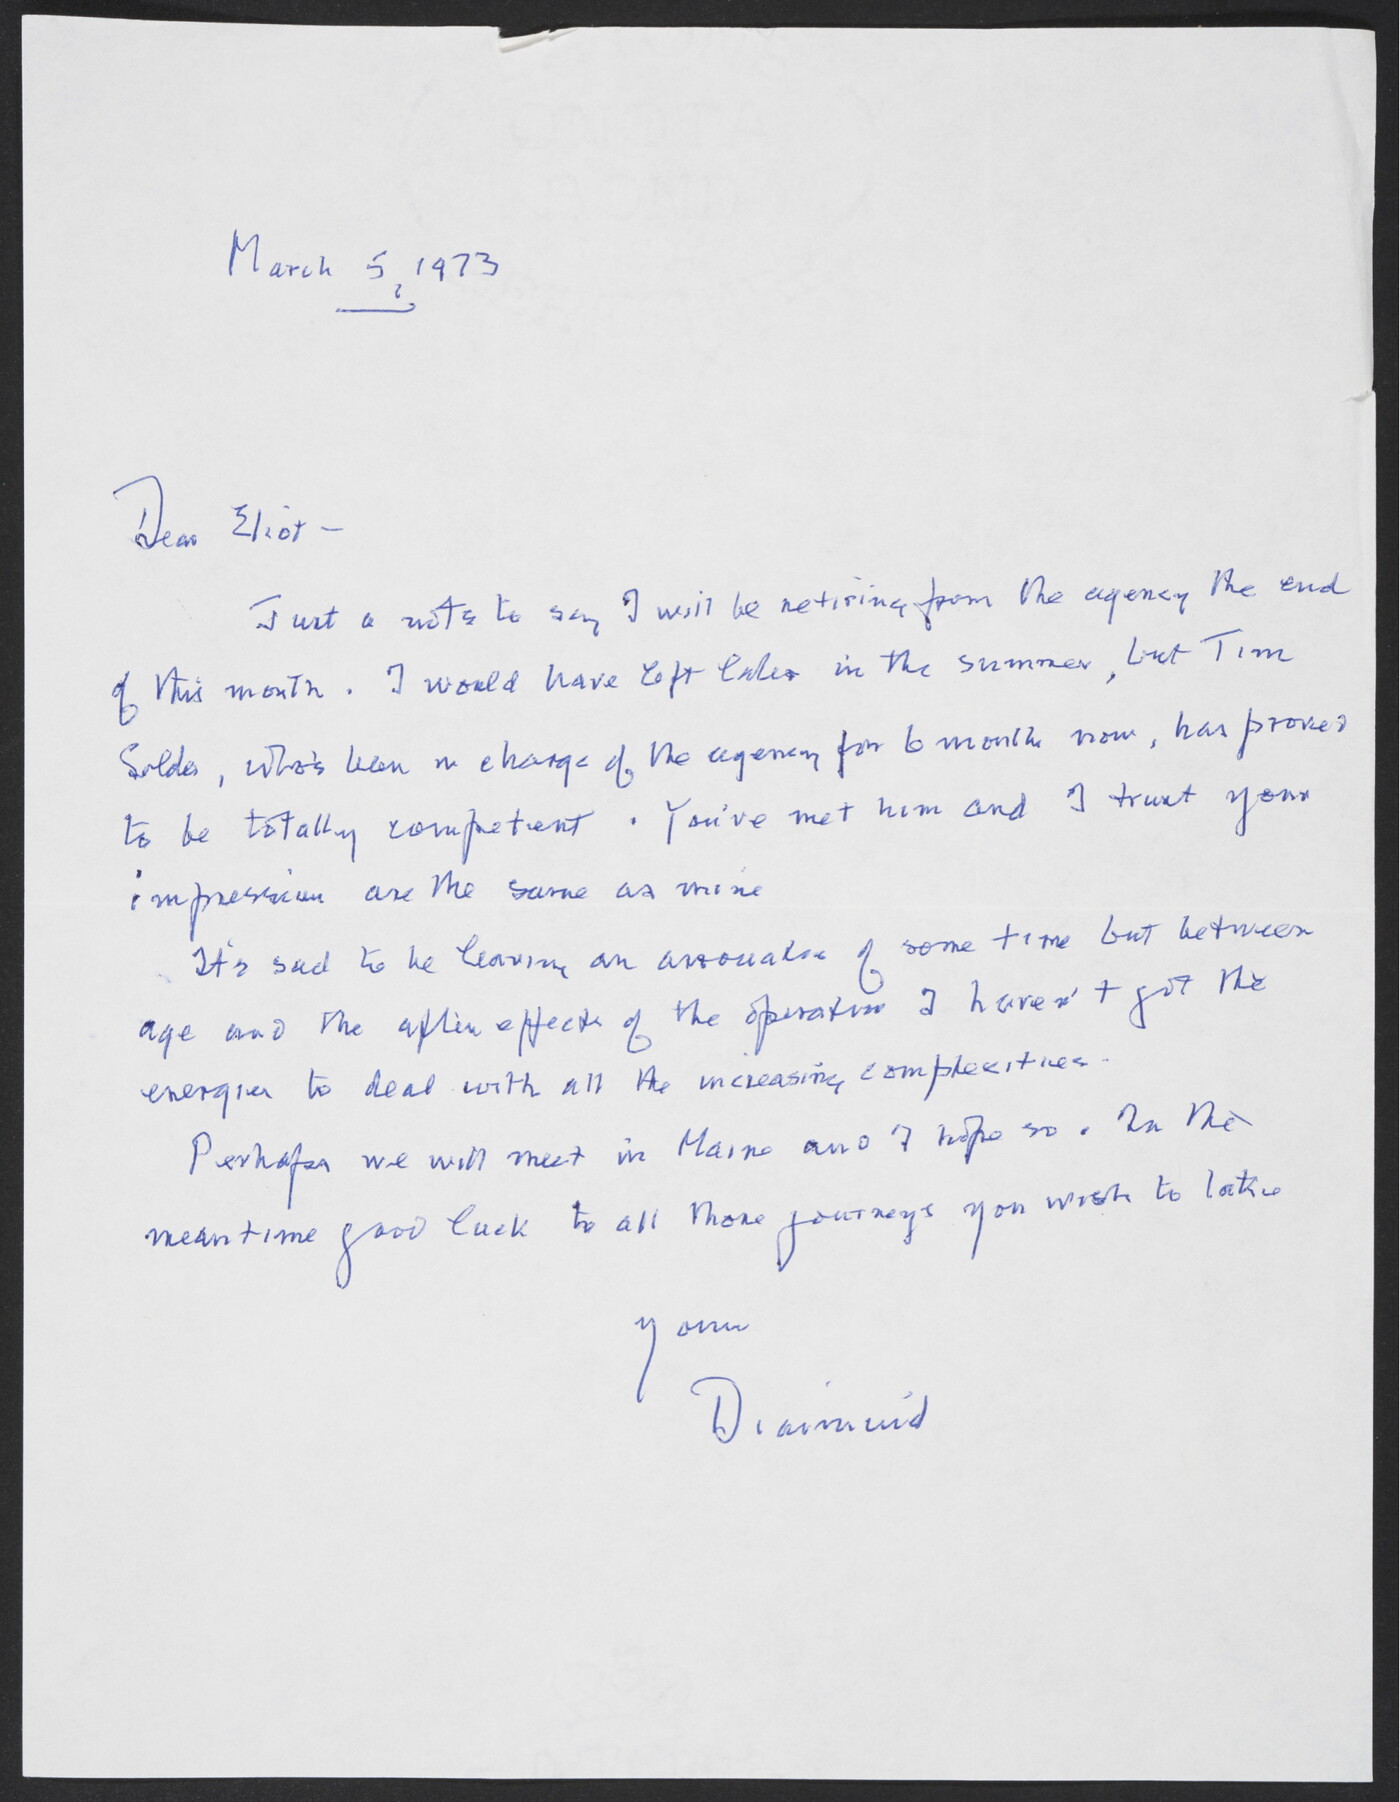 March 5, 1973
Dear Eliot –
Just a note to say I will be retiring from the agency the end
of this month. I would have left later in the summer, but Tim
Seldes, who's been in charge of the agency for 6 months now, has proved
to be totally competent. You've met him and I trust your
impressions are the same as mine
It's sad to be leaving an association of some time but between
age and the after effects of the operation I haven't got the
energies to deal with all the increasing complexities.
Perhaps we will meet in Maine and I hope so. In the
meantime good luck to all those journeys you wish to take
yours
Diarmuid